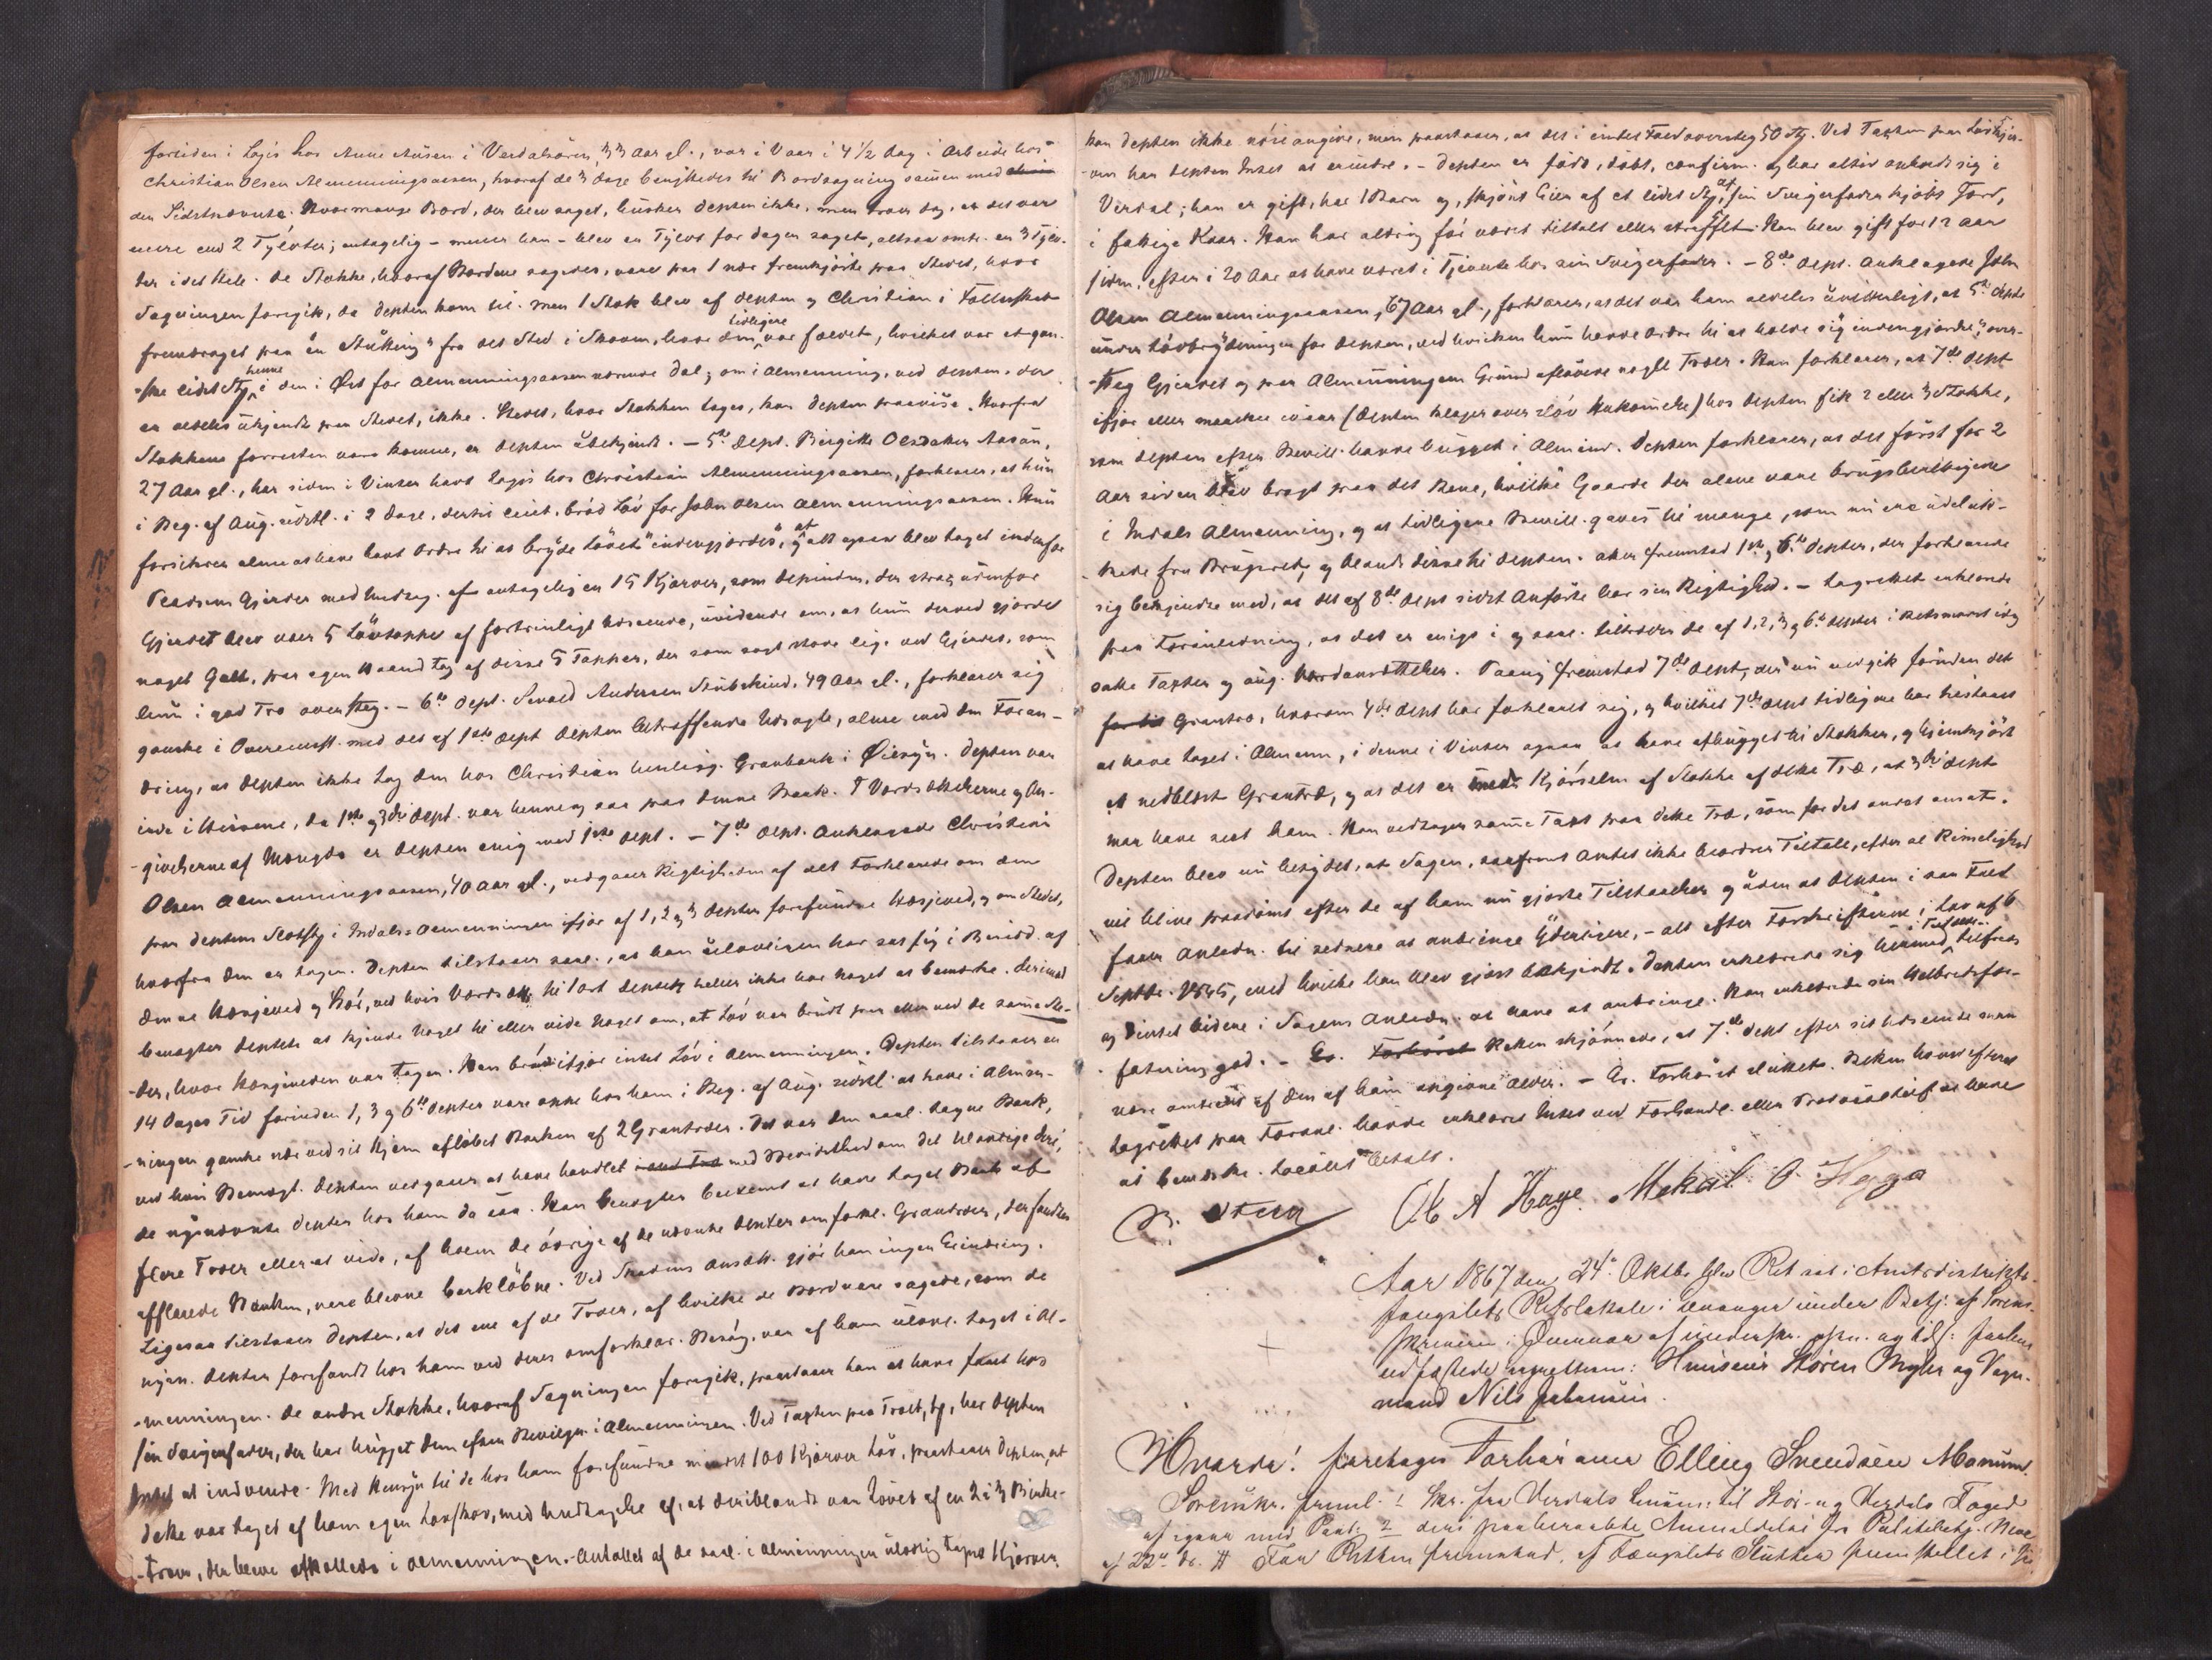 forleden i Logis hos Anne Ausen i Verdalsören, 33 Aar gl., var i Vaar i 4 1/2 Dag i Arbeide hos
Christian Olsen Almenningsaasen, hvoraf de 3 Dage benyttedes til Bordsagning sammen med
den Sidstnævnte. Hvormange Bord, der blev saget, husker Depten ikke, men troer dog, at det var
mere end 2 Tylvter; antagelig - mener han - blev en Tylvt for Dagen saget, altsaa omtr. en 3 Tylv-
ter i det Hele. De Stokke, hvoraf Bordene sagedes, vare paa 1 nær fremkjörte paa Stedet, hvor
Sagningen foregik, da Depten kom til. Men 1 Stok blev af Depten og Christian i Fællesskab
fremdraget paa en Stutting fra det Sted i Skoven, hvor den tidligere var fældet, hvilket var et gan-
ske lidet St. henne i den i Öst for Almenningsaasen værende Dal; om i Almenning, ved Depten, der
er aldeles ukjendt paa Stedet, ikke. Stedet, hvor Stokken toges, kan Depten paavise. Hvorfra
Stokkene forresten vare komne, er Depten ubekjendt. - 5te Dept. Birgitte Olsdatter Aasan,
27 Aar gl., har siden i Vinter havt Logis hos Christian Almenningsaasen, forklarer, at hun
i Beg. af Aug. sidstl. i 2 Dage, dertil leiet, bröd Löv for John Olsen Almenningsaasen. Hun
forsikrer alene at have havt Ordre til at bryde Lövet "indengjærdes", og at alt ogsaa blev taget indenfor
Pladsens Gjerder med Undtag. af antagelig en 15 Kjærver, som Depinden, der strax udenfor
Gjerdet blev vaer 5 Lövtopper af fortrinligt Udseende, uvidende om, at hun derved gjorde
noget Galt, paa egen Haand tog af disse 5 Topper, der som sagt stode lige ved Gjerdet, som
hun i god Tro oversteg. - 6te Dept. Sevald Andersen Stubskind, 49 Aar gl., forklarer sig
ganske i Overensst. med det af 1ste Dept. Depten betræffende Udsagte, alene med den Foran-
dring, at Depten ikke tog den hos Christian henligg. Granbark i Öiesyn. Depten var
inde i Husene, da 1ste og 3die Dept. var henne og saa paa denne Bark. I Værdsættelserne og An-
givelserne af Mængde er Depten enig med 1ste Dept. - 7de Dept. Anklagede Christian
Olsen Almenningsaasen, 40 Aar gl., vedgaaer Rigtigheden af det Forklarede om den
paa Deptens Slotstg i Indals-Almenningen ifjor af 1, 2 og 3 Depter forefundne Hæsjeved, og om Stedet,
hvorfra den er tagen. Depten tilstaaer saal., at han ulovligen har sat sig i Besidd. af
denne Hæsjeved og Höi, ved hvis Værdsætt. til 1 Ort Depten heller ikke har Noget at bemærke. Derimod
benægter Depten at kjende Noget til eller vide Noget om, at Löv var brudt paa eller ved de samme Ste-
der, hvor Hæsjeveden var tagen. Han bröd ifjor intet Löv i Almenningen. Depten tilstaaer en
14 Dages Tid forinden 1, 3 og 6te Depter vare oppe hos ham i Beg. af Aug. sidstl. at have i Almen-
ningen ganske nær ved sit Hjem aflöbet Barken af 2 Grantræer. Det var den saal. tagne Bark,
ved hvis Bemægt. Depten vedgaaer at have handlet med Bevidsthed om det Ulovlige deri,
de nysnævnte Depter hos ham da saa. Han benægter bestemt at have taget Bark af
flere Træer eller at vide, af hvem de övrige af de nævnte Depter omforkl. Grantræer, der fandtes
afflækede Barken, vare blevne barklöbne. Ved Skadens Ansætt. gjör han ingen Erindring.
Ligesaa tilstaaer Depten, at det ene af de Træer, af hvilke de Bord vare sagede, som de
nysn. Depter forefandt hos ham ved deres omforklar. Besög, var af ham ulovl. taget i Al-
menningen. De andre Stokke, hvoraf Sagningen foregik, paastaaer han at have faaet hos
sin Svigerfader, der har hugget dem efter Bevilgn. i Almenningen. Ved Taxten paa Træet, har Depten
Intet at indvende. Med Hensyn til de hos ham forefundne mindst 100 Kjærver Löv, paastaaer Depten, at
dette var taget af hans egen Lövskov, med Undtagelse af, at deriblandt var Lövet af en 2 á 3 Birke-
træer, der bleve afkollede i Almenningen. Antallet af de saal. i Almenningen ulovlig tagne Kjærver,
kan Depten ikke nöie angive, men paastaaer, at det i intet Fald oversteg 50 St. Ved Taxten paa Lövkjer-
ven har Depten Intet at erindre. - Depten er född, döbt, confirm. og har altid opholdt sig i
Verdal; han er gift, har 1 Barn og, skjönt Eier af et lidet St., af sin Svigerfader kjöbt Jord,
i fattige Kaar. Han har aldrig för været tiltalt eller straffet. Han blev gift for 12 Aar
siden, efter i 20 Aar at have været i Tjeneste hos sin Svigerfader. - 8de Dept. Anklagede John
Olsen Almenningsaasen, 67 Aar gl., forklarer, at det var ham aldeles uvitterligt, at 5te Depte
under Lövbrydningen for Depten, ved hvilken hun havde Ordre til at holde sig "indengjærdes", over-
steg Gjerdet og paa Almenningens Grund aflövede nogle Træer. Han forklarer, at 7de Dept
ifjor eller maaskee iaar (Depten klager over slöv Hukommelse) hos Depten fik 2 eller 3 Stokke,
som Depten efter Bevill. havde hugget i Almenn. Depten forklarer, at det först for 2
Aar siden blev bragt paa det Rene, hvilke Gaarde der alene vare brugsberettigede
i Indals Almenning, og at tidligere Bevill. gaves til mange, som nu ere udeluk-
kede fra Brugsret, og blandt disse til Depten. Atter fremstod 1ste og 6te Depter, der forklarede
sig bekjendte med, at det af 8de Dept sidst Anförte har sin Rigtighed. - Lagrettet erklærede
paa Foranledning, at det er enigt i og saal. tiltræder de af 1, 2, 3 og 6te Depter i Retsmödet idag
satte Taxter og ang. Værdansættelser. Paany fremstod 7de Dept, der nu vedgik foruden det
Grantræ, hvorom 4de Dept har forklaret sig, og hvilket 7de Dept tidligere har tilstaaet
at have taget i Almenn., i denne i Vinter ogsaa at have afhugget til Stokker, og hjemkjört
et nedblæst Grantræ, og at det er med Kjörselen af Stokke af dette Træ, at 3die Dept
maa have seet ham. Han vedtager samme Taxt paa dette Træ, som for det andet ansat.
Depten blev nu betydet, at Sagen, saafremt Amtet ikke beordrer Tiltale, efter al Rimelighed
vil blive paadömt efter de af ham nu gjorte Tilstaaelser og uden at Depten i saa Fald
faaer Anledn. til sednere at anbringe Yderligere, - alt efter Forskrifterne i Lov af 6
Septbr. 1845, med hvilke han blev gjort bekjendt. Depten erklærede sig hermed tilfreds
og Intet videre i Sagens Anledn. at have at anbringe. Han erklærede sin Helbredsfor-
fatning god. - Retten skjönnede, at 7de Dept efter sit Udseende maa
være omtrent af den af ham angivne Alder. - Forhöret sluttet. Retten hævet efterat
Lagrettet paa Foranl. havde erklæret Intet ved Forhandl. eller Protocoltilf. at have
at bemærke. Localet betalt.
B. Stern Ole A Hage. Mekal O. Hegga
Aar 1867 den 24de Oktbr. blev Ret sat i Amtsdistrikts-
fængslets Retslokale i Levanger under Betj. af Sorens-
kriveren
edfæstede Husmand Sören Myhr og Vogn-
mand Nils Johansen.
Hvorda! foretages Forhör over Elling Svendsen Monum.
Sorenskr. freml. 1 Skr. fra Verdals Lensm. til Stör- og Verdals Foged
af 22de ds. For Retten fremstod, af Fængslets Slutter fremstillet i